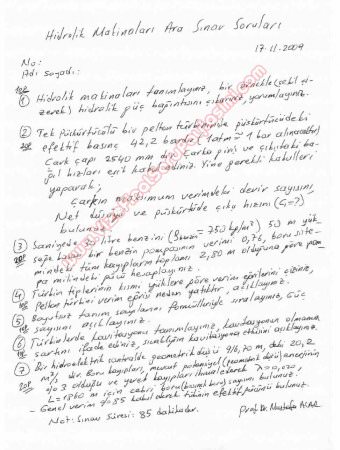 Hidrolik Makinaları Ara Sınav Soruları
17.11.2009
No:
Adı soyadı:
10P
1 Hidrolik makinaları tanımlayınız, bir örnekle (şekil çi-
zerek) hidrolik güç bağıntısını çıkarınız, yorumlayınız.
2 Tek püskürtücülü bir pelton türbininde püskürtücüdeki
efektif basınç 42,2 bardır (1atm = 1 bar alınacaktır)
Çark çapı 2540 mm dir. Çarka giriş ve çıkıştaki ba-
ğıl hızları eşit kabul ediniz. Yine gerekli kabulleri
yaparak;
Çarkın maksimum verimdeki devir sayısını,
Net düşüyü ve püskürtücü çıkış hızını (C1=?)
bulunuz.
3 Saniyede litre benzini 750 kp/m³) 50 m yük
bir benzin pompasının verimi 0,76, boru siste-
mindeki tüm kayıpların toplamı 2,80 m olduğuna göre pom-
pa milindeki gücü hesaplayınız.
4 Türbin tiplerinin kısmi yüklere göre verim eğrilerini çiziniz,
Pelton türbini verim eğrisi neden yatıktır, açıklayınız.
5 Boyutsuz tanım sayılarını formülleriyle sıralayınız, Güç
sayısını açıklayınız.
6 Türbinlerde kavitasyonu tanımlayınız, kavitasyonun olmama
şartını ifade ediniz, sıcaklığın kavitasyona etkisini açıklayınız.
7 Bir hidroelektrik santralde geometrik düşü 916,70 m, debi 20,2
m³/s dir. Boru kayıpları, mevcut potansiyel (geometrik düşü) enerjinin
%3 olduğu ve yerel kayıpları ihmal ederek λ=0,020
L=1860 m için, cebri boru çapını bulunuz.
- Genel verim %85 kabul ederek türbinin efektif gücünü bulunuz.
Not: Sınav Süresi: 85 dakikadır.
Prof.Dr. Mustafa